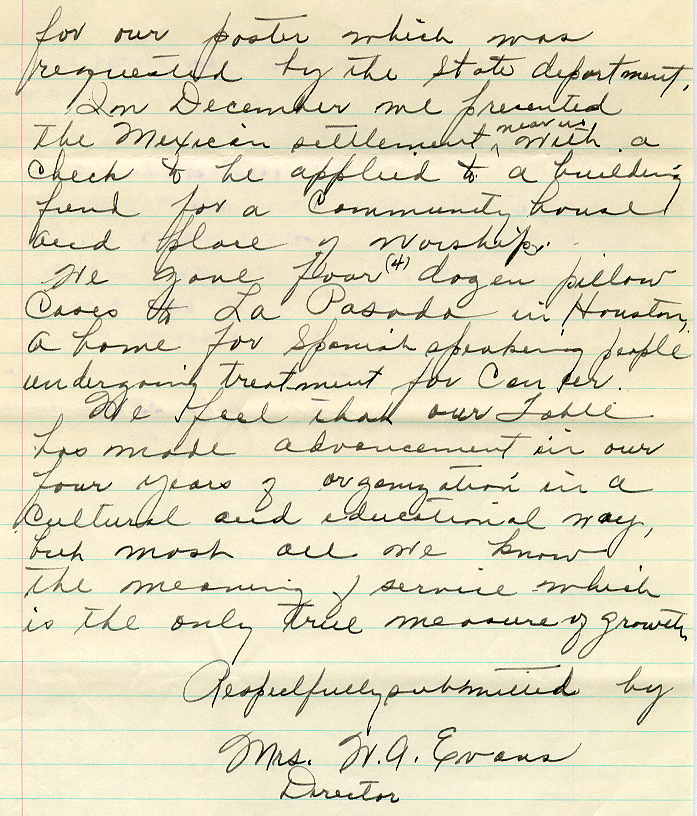 for our poster which was
requested by the State department.
In December we presented
the Mexican settlement ^near us with a
check to be applied to a building
fund for a Community house
and place of worship.
We gave four (4) dozen pillow
Cases to La Posada in Houston,
a home for Spanish speaking people
undergoing treatment for Cancer.
We feel that our Table
has made advancement in our
four years of organization in a
Cultural and educational way,
but most all we know
the meaning of service which
is the only true measure of growth.
Respectfully submitted by
Mrs. W.A. Evans
Director